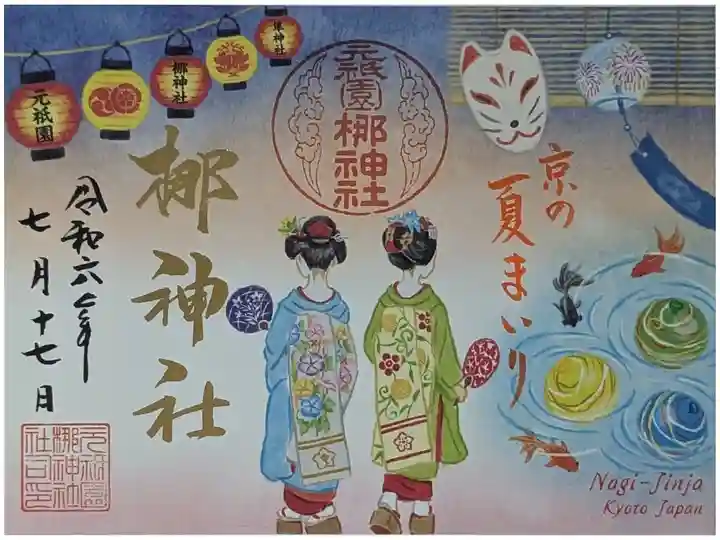 元祇園
梛神社
隼神社
元祇園
梛神社
京の
夏まいり
梛神社
令和六年
七月十七日
元祇園
梛神神
社之印
Nagi-Jinja
Kyoto Japan